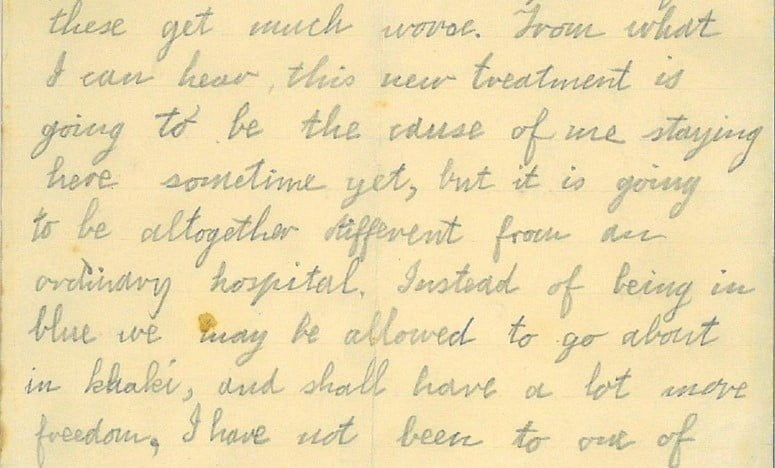 these get much worse. From what
I can hear, this new treatment is
going to be the cause of me staying
here sometime yet, but it is going
to be altogether different from an
ordinary hospital. Instead of being in
blue we may be allowed to go about
in khaki, and shall have a lot more
freedom. I have not been to one of